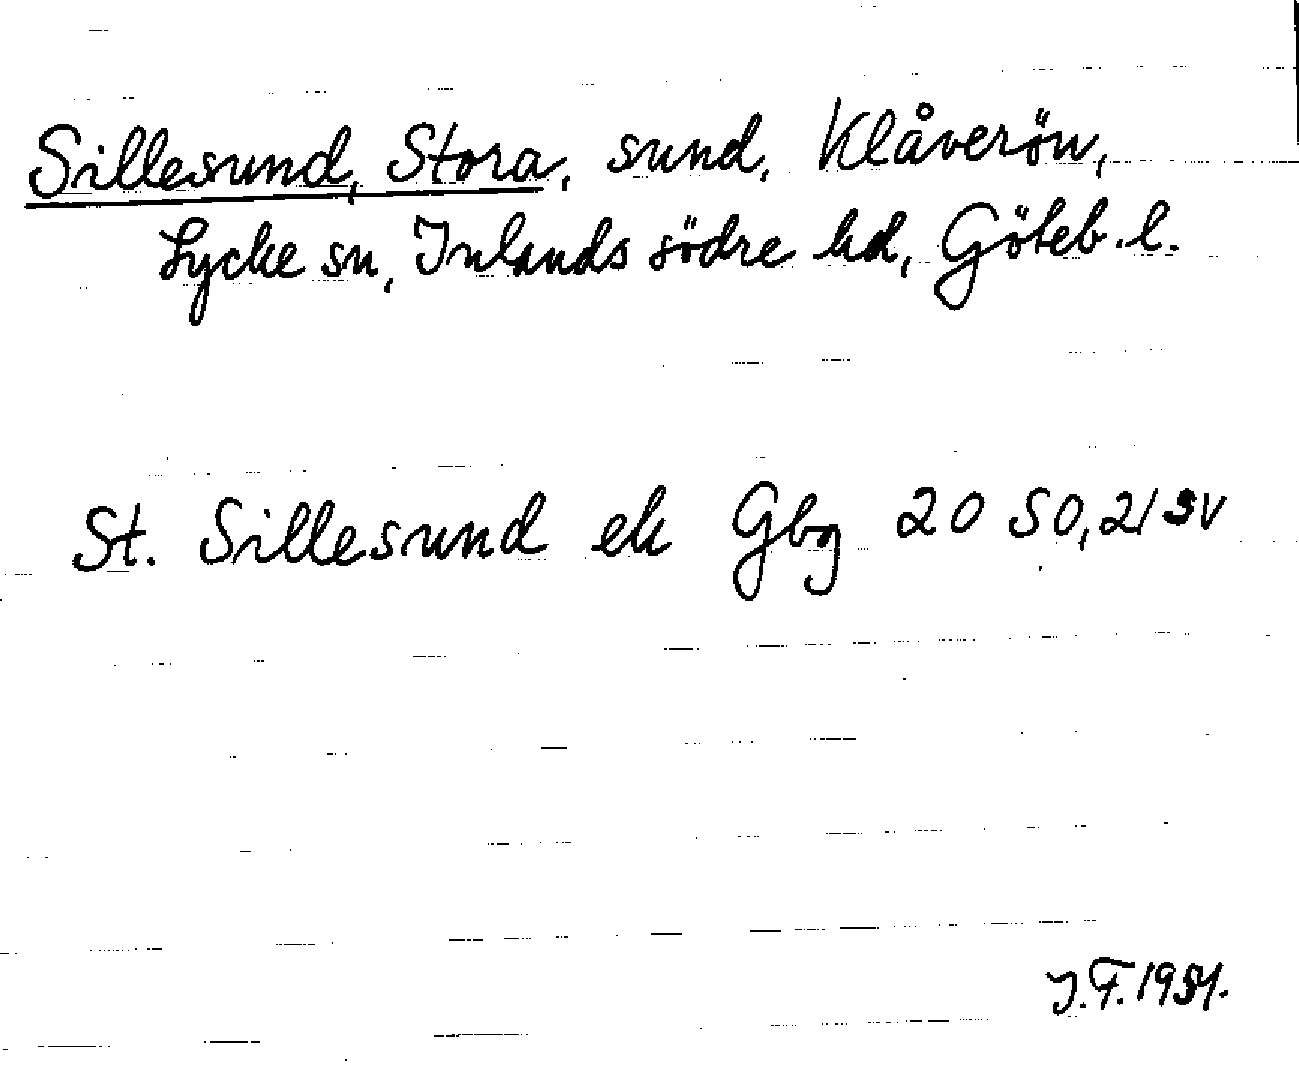 Sillesund, Stora, sund, Klåverön,
Lycke sn, Inlands södre hd, Göteb. l.
St. Sillesund ek Gbg 20 SO, 21 SV
J.F. 1954.